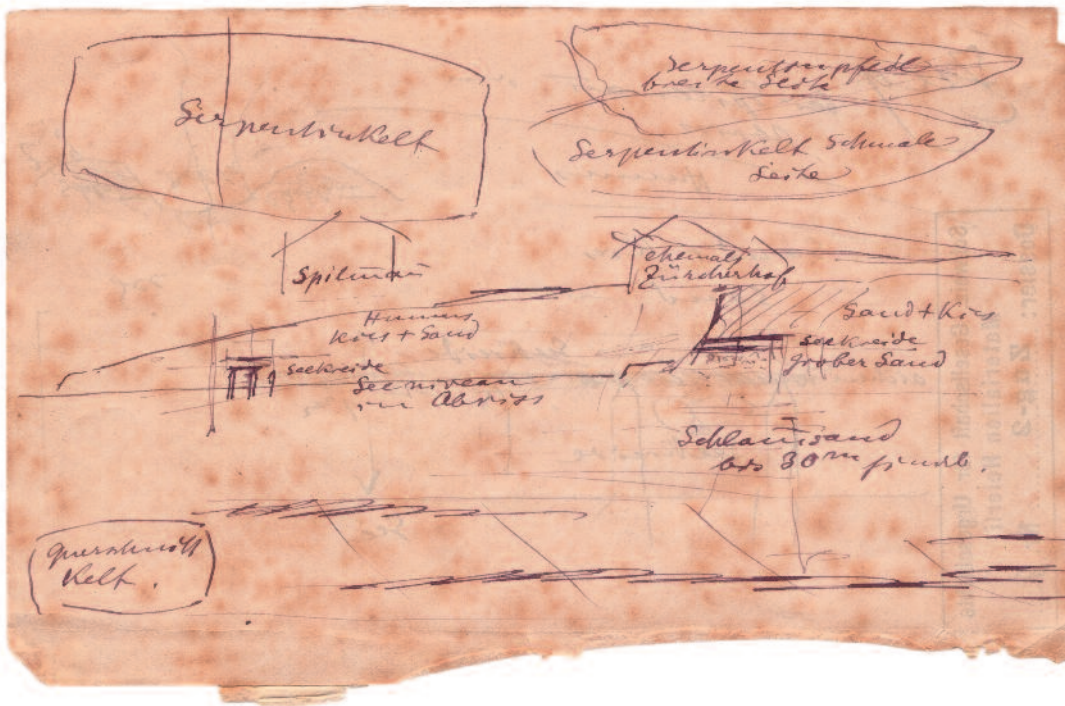 Serpentinkelt
breite Seite
Serpentinkelt Schmale
Seite
Spilman
ehemals
Zürcherhof
Humus
Kies + Sand
Sand + Kies
Seekreide
Seekreide
grober Sand
Seeniveau
im Abriss
Schlamsand
bis 30 m
Querschnitt
Kelt.